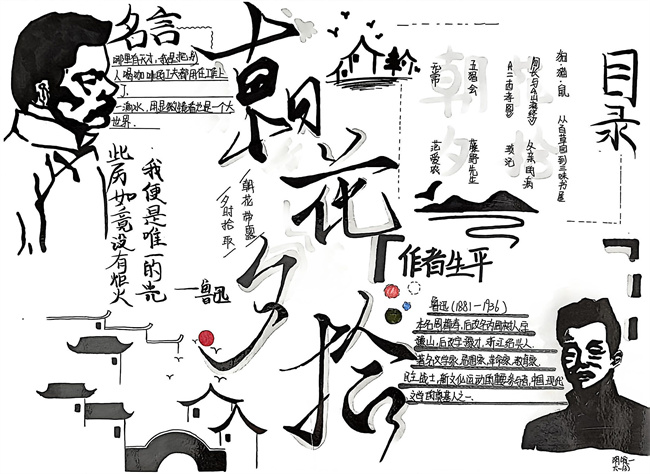 名言
哪里有天才,我是把别
人喝咖啡的工夫都用在工作上
了.
一滴水,用显微镜看也是一个大
世界.
此后如竟没有炬火
我便是唯一的光
——鲁迅
朝花夕拾
朝花带露
夕时拾取
目录
狗·猫·鼠
从百草园到三味书屋
阿长与《山海经》
父亲的病
《二十四孝图》
琐记
五猖会
藤野先生
无常
范爱农
朝
夕
拾
作者生平
鲁迅(1881-1936)
本名周樟寿,后改名为周树人,字
豫山,后改字豫才,浙江绍兴人.
著名文学家、思想家、革命家、教育家,
民主战士,新文化运动的重要参与者,中国现代
文学的奠基人之一.